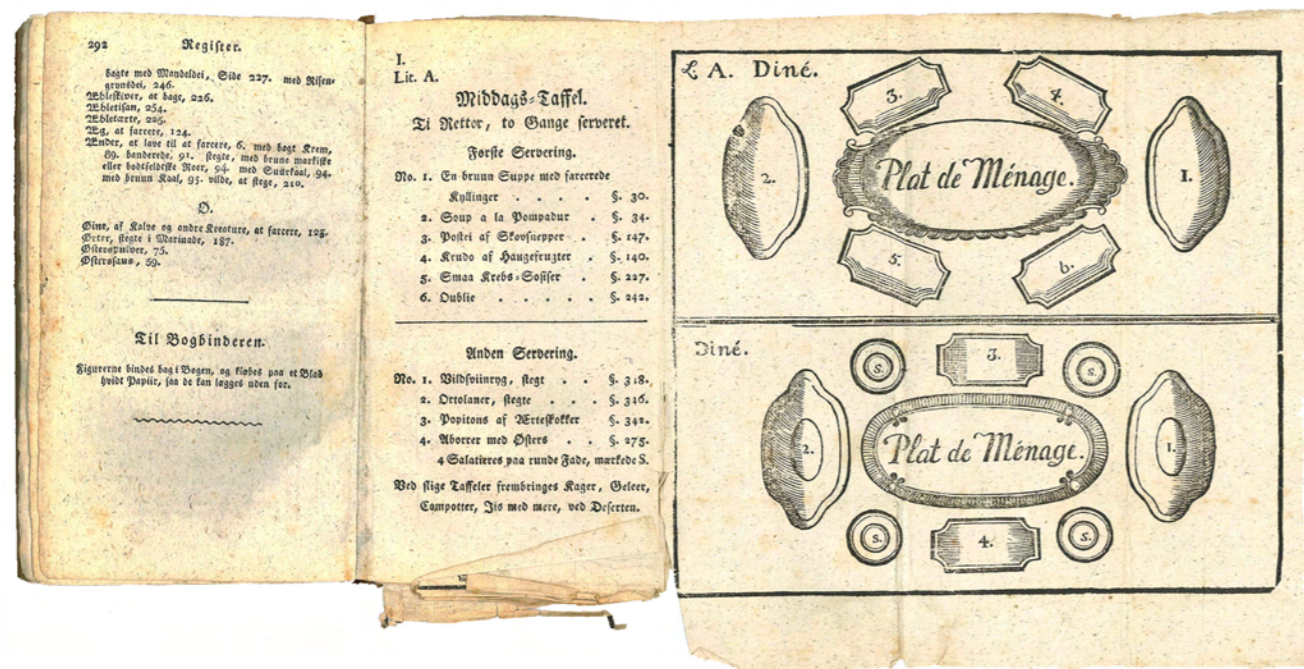 292 Register.
bagte med Mandeldei, Side 227. med Risen-
grynsdei, 246.
Æbleskiver, at bage, 226.
Æbletisan, 254.
Æbletærte, 225.
Æg, at farcere, 124.
Ænder, at lave til at farcere, 6. med bagt Krem,
89. banderede, 91. stegte, med brune markiske
eller bodtfeldtske Roer, 94. med Suurkaal, 94.
med bruun Kaal, 95. vilde, at stege, 210.
Ø.
Øine, af Kalve og andre Kreature, at farcere, 125.
Ørter, stegte i Marinade, 187.
Østerspulver, 75.
Østerssaus, 59.
Til Bogbinderen.
Figurerne bindes bag i Bogen, og klæbes paa et Blad
hvidt Papiir, saa de kan lægges uden for.
I.
Lit. A.
Middags-Taffel.
Ti Retter, to Gange serveret.
Første Servering.
No. 1. En bruun Suppe med farcerede
Kyllinger . . . . §. 30.
2. Soup a la Pompadur . §. 34.
3. Postei af Skovsnepper . §. 147.
4. Krudo af Haugefrugter . §. 140.
5. Smaa Krebs-Sosiser . §. 227.
6. Oublie . . . . . §. 242.
Anden Servering.
No. 1. Vildsviinryg, stegt . . §. 318.
2. Ortolaner, stegte . . . §. 316.
3. Popitons af Ærteskokker . §. 342.
4. Aborrer med Østers . . §. 275.
4 Salatieres paa runde Fade, mærkede S.
Ved slige Taffeler frembringes Kager, Geleer,
Campotter, Jis med mere, ved Deserten.
L. A. Diné.
3. 4.
2. Plat de Ménage. 1.
5. 6.
Diné.
S. 3. S.
2. Plat de Ménage. 1.
S. 4. S.